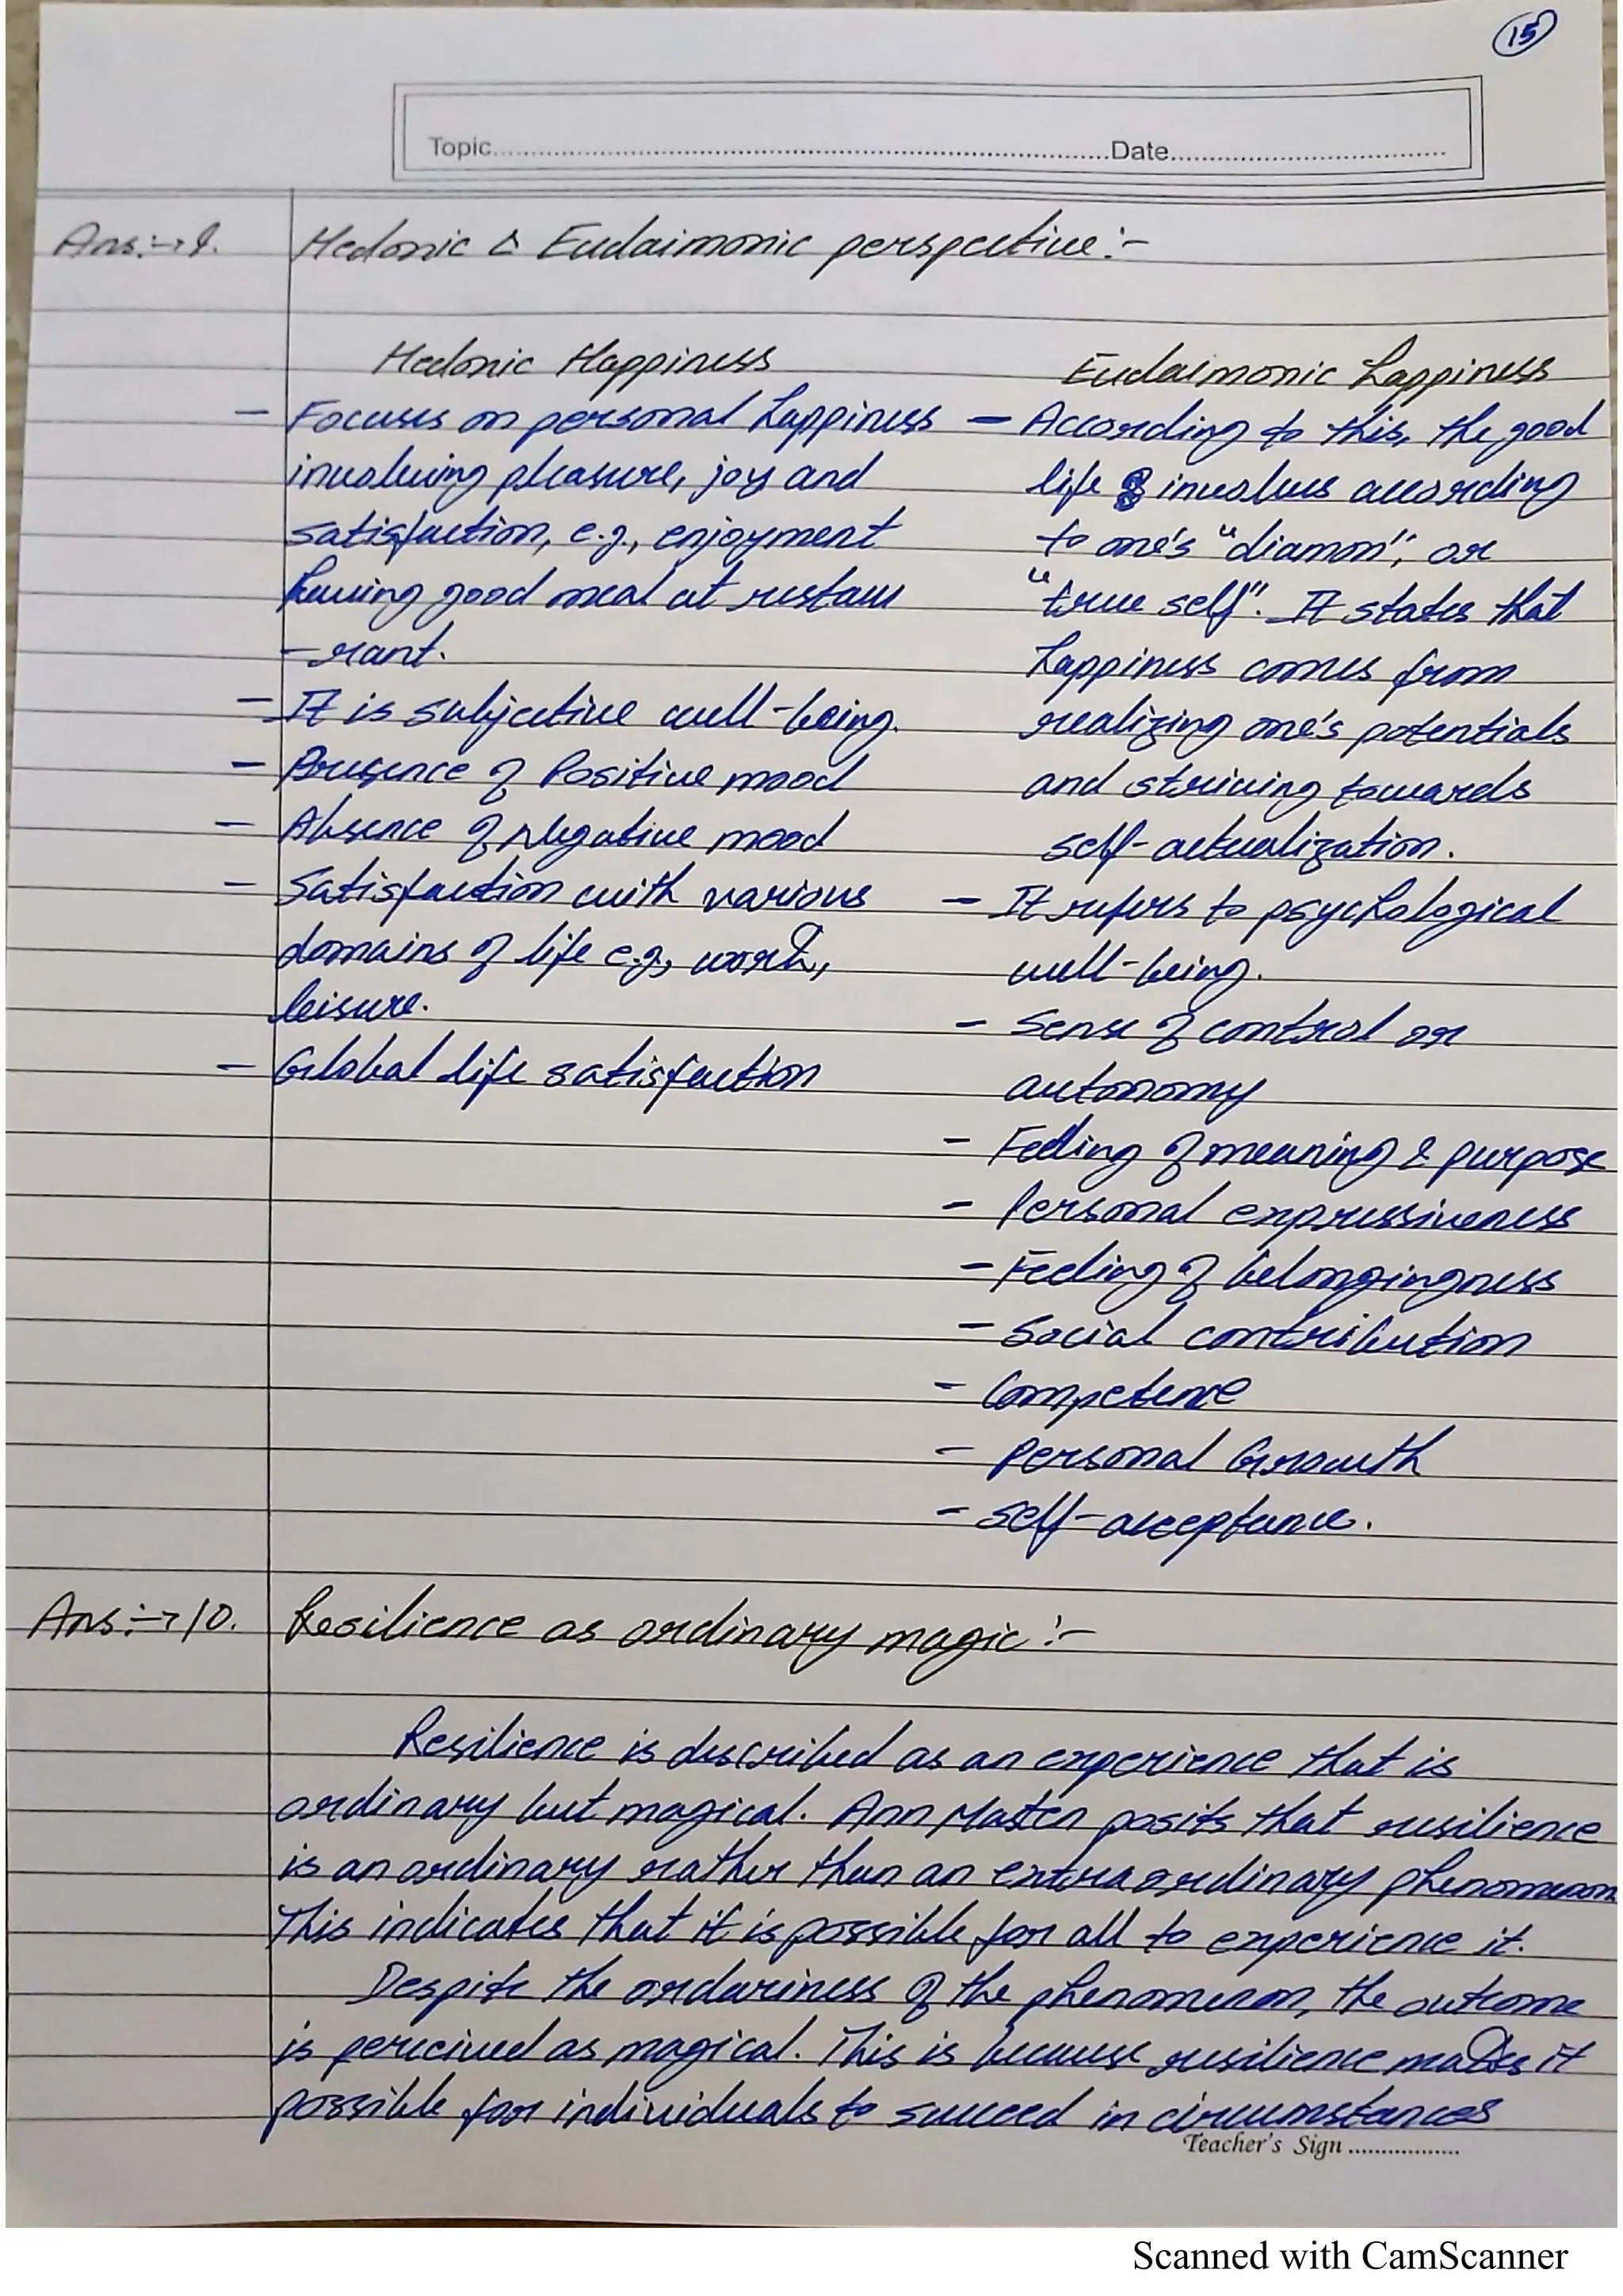 15
Topic.....................................................Date.....................
Ans:→9. Hedonic & Eudaimonic perspective:-
Hedonic Happiness
- Focuses on personal happiness
involving pleasure, joy and
satisfaction, e.g., enjoyment
having good meal at restau
-rant.
- It is subjective well-being.
- Presence of Positive mood
- Absence of Negative mood
- Satisfaction with various
domains of life e.g., work,
leisure.
- Global life satisfaction
Eudaimonic happiness
- According to this, the good
life involves according
to one's "diamon", or
"true self". It states that
happiness comes from
realizing one's potentials
and striving towards
self-actualization.
- It refers to psychological
well-being.
- Sense of control or
autonomy
- Feeling of meaning & purpose
- Personal expressiveness
- Feeling of belongingness
- Social contribution
- Competence
- Personal Growth
- self-acceptance.
Ans:→10. Resilience as ordinary magic:-
Resilience is described as an experience that is
ordinary but magical. Ann Masten posits that resilience
is an ordinary rather than an extraordinary phenomenon
This indicates that it is possible for all to experience it.
Despite the ordariness of the phenomenon, the outcome
is perceived as magical. This is because resilience makes it
possible for individuals to succeed in circumstances
Teacher's Sign ..................
Scanned with CamScanner